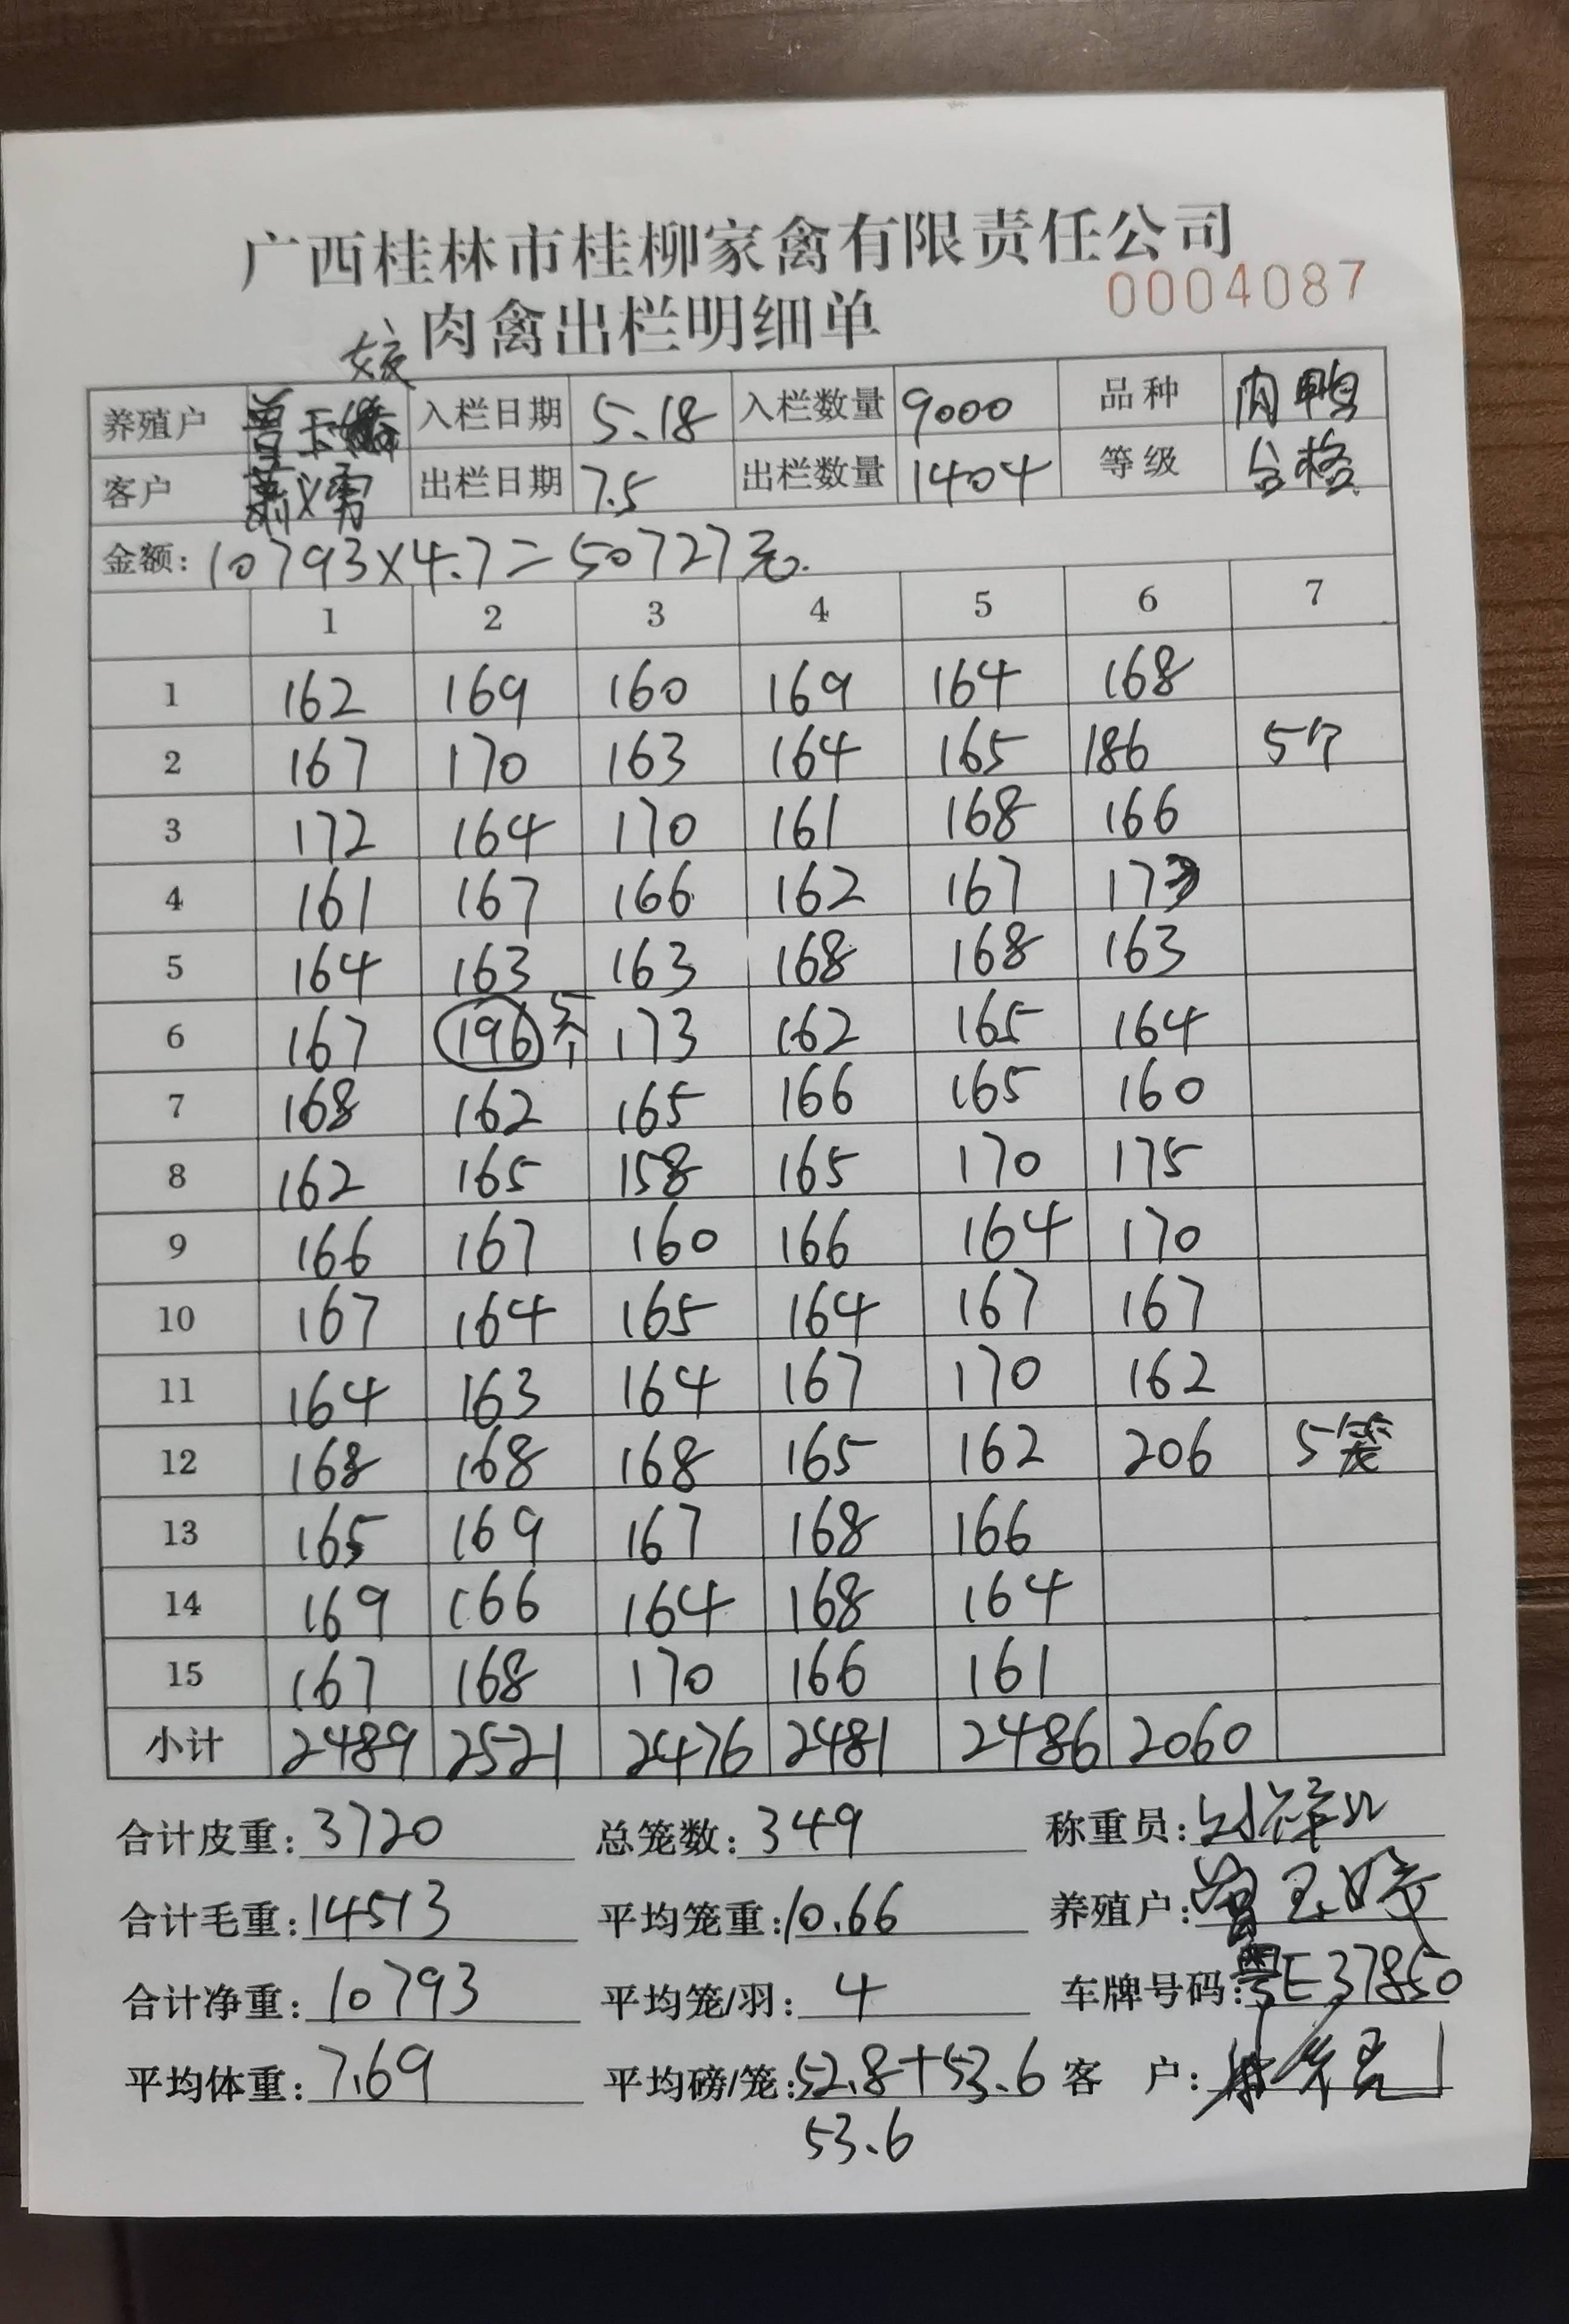 广西桂林市桂柳家禽有限责任公司
0004087
肉禽出栏明细单
养殖户 曾玉 入栏日期 5.18 入栏数量 9000 品种 肉鸭
客户 萧义勇 出栏日期 7.5 出栏数量 1404 等级 合格
金额: 10793×4.7=50727元.
1 2 3 4 5 6 7
1 162 169 160 169 164 168
2 167 170 163 164 165 186 5个
3 172 164 170 161 168 166
4 161 167 166 162 167 173
5 164 163 163 168 168 163
6 167 196 5个 173 162 165 164
7 168 162 165 166 165 160
8 162 165 158 165 170 175
9 166 167 160 166 164 170
10 167 164 165 164 167 167
11 164 163 164 167 170 162
12 168 168 168 165 162 206 5笼
13 165 169 167 168 166
14 169 166 164 168 164
15 167 168 170 166 161
小计 2489 2521 2476 2481 2486 2060
合计皮重: 3720 总笼数: 349 称重员:
合计毛重: 14513 平均笼重: 10.66 养殖户: 曾玉婷
合计净重: 10793 平均笼/羽: 4 车牌号码: 粤E37850
平均体重: 7.69 平均磅/笼: 52.8+53.6 客 户:
53.6